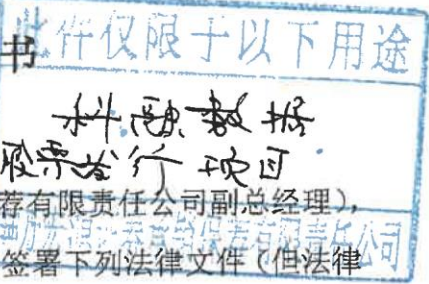 此件仅限于以下用途
书
科融数据
股票发行项目
荐有限责任公司副总经理),
有限责任公司
签署下列法律文件(但法律